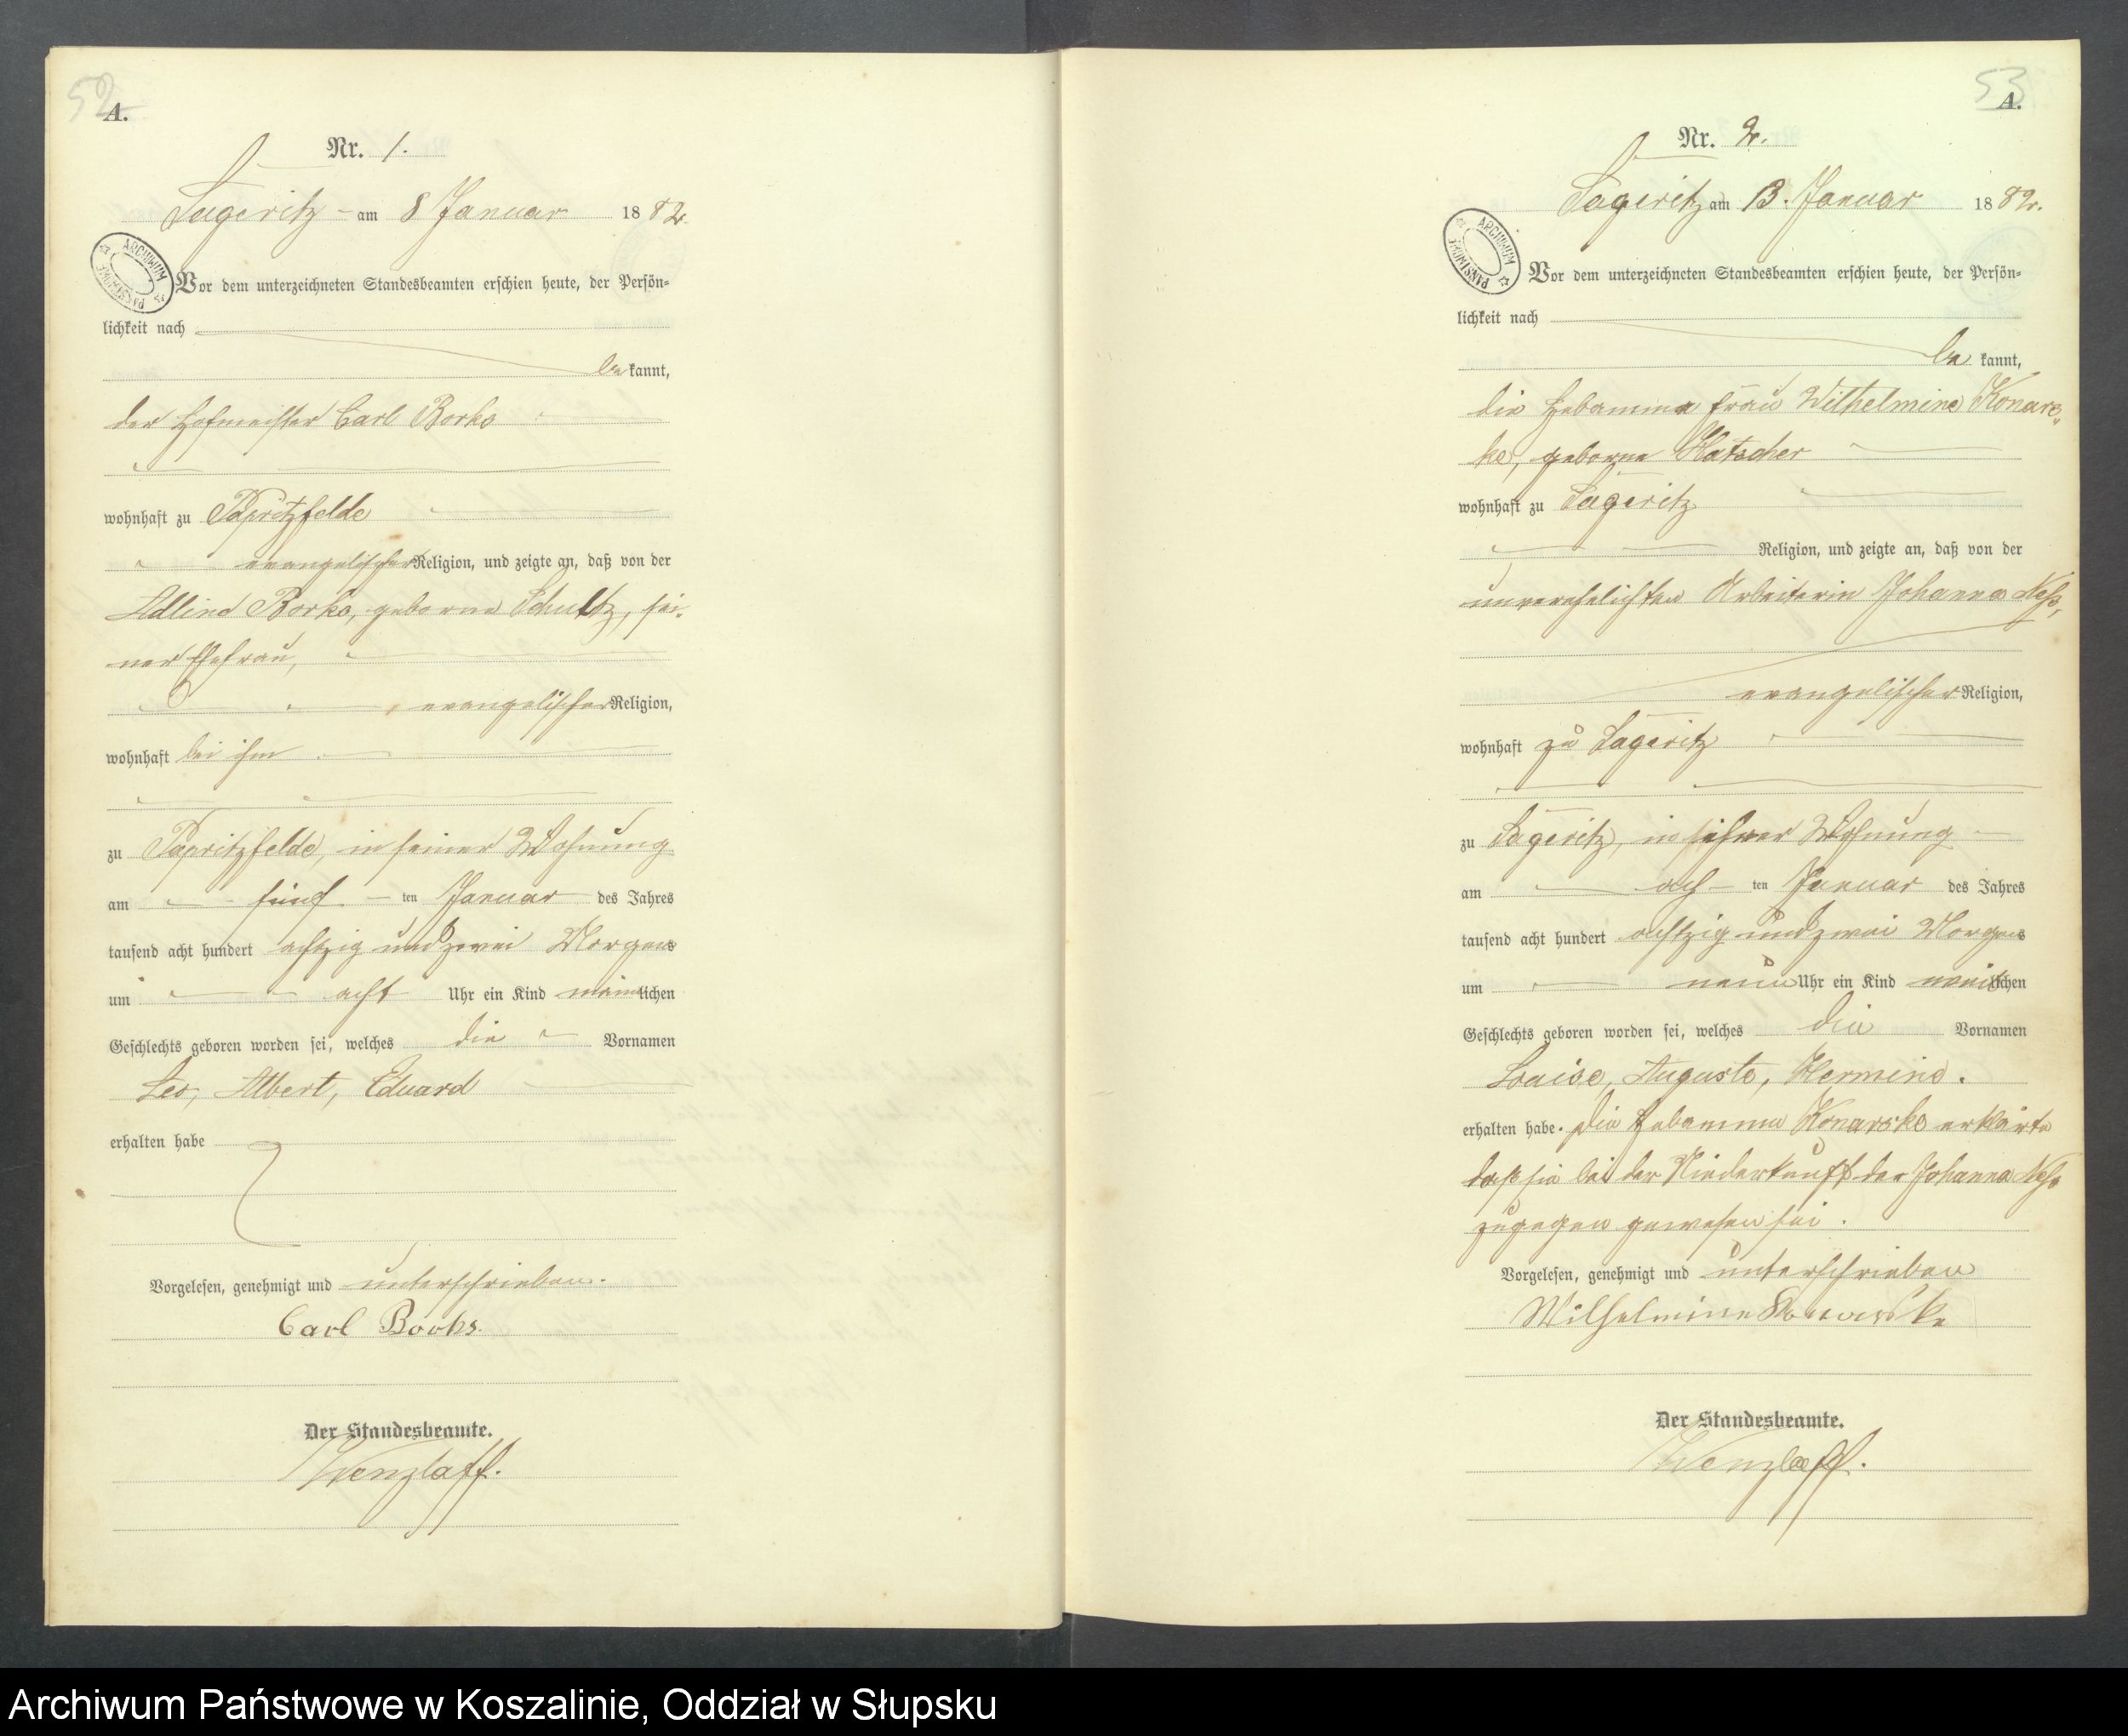 52
A.
Nr. 1.
Sageritz am 8 Januar 1882.
ARCHIWUM PAŃSTWOWE
Vor dem unterzeichneten Standesbeamten erschien heute, der Persön=
lichkeit nach
bekannt,
der Hofmeister Carl Borks
wohnhaft zu Papritzfelde
evangelischer Religion, und zeigte an, daß von der
Borks, geborne Schultz, sei-
ner Ehefrau,
evangelischer Religion,
wohnhaft bei ihm
zu Papritzfelde, in seiner Wohnung
am fünf ten Januar des Jahres
tausend acht hundert achtzig und zwei Morgens
um acht Uhr ein Kind männlichen
Geschlechts geboren worden sei, welches die Vornamen
Leo, Albert, Eduard
erhalten habe
Vorgelesen, genehmigt und unterschrieben.
Carl Borks.
Der Standesbeamte.
Wenzlaff.
53
A.
Nr. 2.
Sageritz am 13. Januar 1882.
ARCHIWUM PAŃSTWOWE
Vor dem unterzeichneten Standesbeamten erschien heute, der Persön=
lichkeit nach
bekannt,
die Hebamme Frau Wilhelmine Konars-
ke, geborne
wohnhaft zu Sageritz
Religion, und zeigte an, daß von der
unverehelichten Arbeiterin Johanna
evangelischer Religion,
wohnhaft zu Sageritz
zu Sageritz, in ihrer Wohnung
am ach ten Januar des Jahres
tausend acht hundert achtzig und zwei Morgens
um neun Uhr ein Kind weiblichen
Geschlechts geboren worden sei, welches die Vornamen
Louise, Auguste, Hermine.
erhalten habe. Die Hebamme Konarske erklärte
daß sie bei der Niederkunft der Johanna
zugegen gewesen sei.
Vorgelesen, genehmigt und unterschrieben
Wilhelmine Konarske
Der Standesbeamte.
Wenzlaff.
Archiwum Państwowe w Koszalinie, Oddział w Słupsku